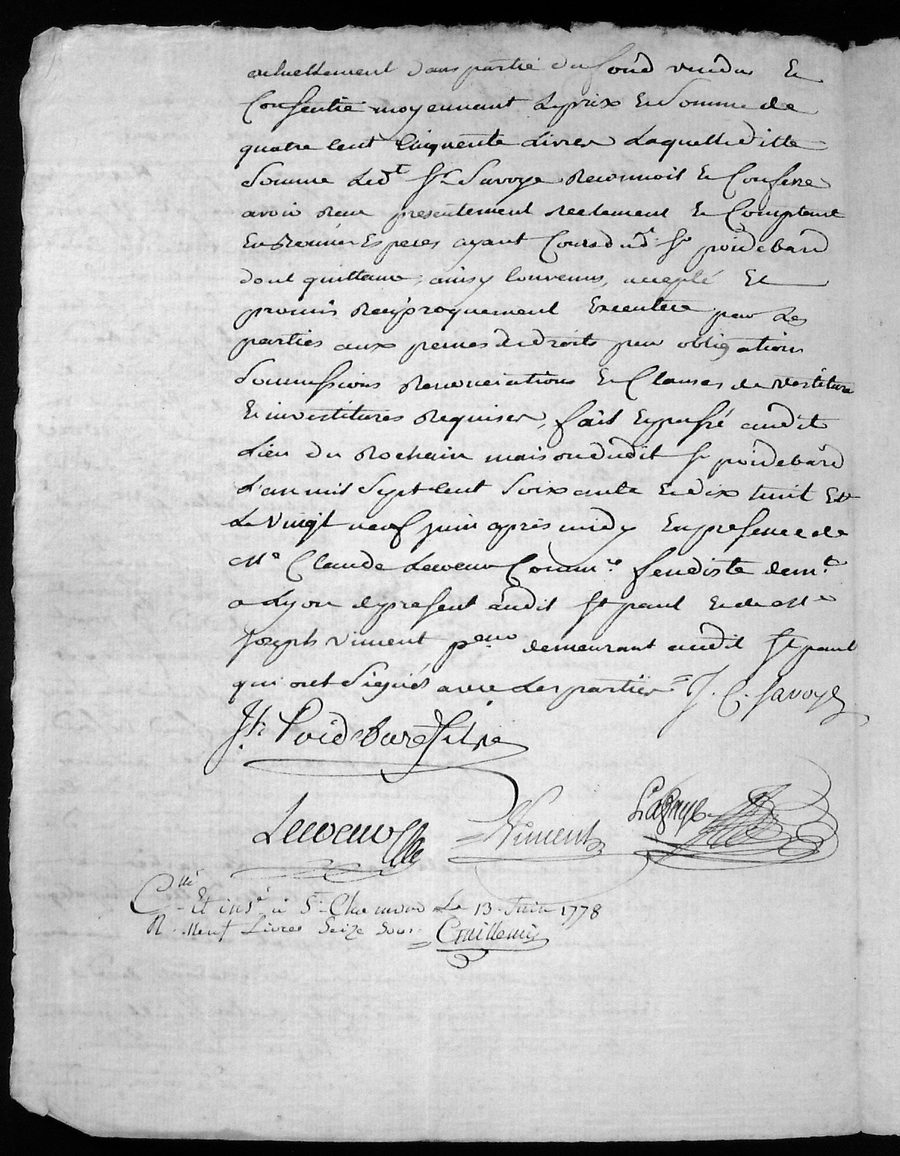 actuellement dans partie du fond vendu Et
Consentie moyennant Leprix En Somme de
quatre Cent Cinquente Livres Laquelle ditte
Somme Led.t S.r Savoye Reconnoit Et Confesse
avoir Reçu presentement Reelement Et Comptent
En Especes ayant Cours dud.t S.r poidebard
dont quittance, ainsy Convenus, accepté Et
promis Reciproquement Executer par Les
parties aux peines de droits par obligations
Soumissions Renonciations Et Clauses de vestiture
Et investitures Requises, fait Et passé audit
Lieu du Rochain maison dudit S.r poidebard
L'an mil Sept Cent Soixante Et dix huit Et
Le vingt neuf juin après midy En presence de
M.e Claude Comm.re feudiste dem.t
a Lyon de present audit S.t paul Et de M.e
Joseph Viment demeurant audit S.t paul
qui ont Signés avec Les parties = J. C. Savoye
J.h Poidebard
Viment
C.llé Et ins.é à S.t Chamond Le 13 Juin 1778
R. Neuf Livres Seize Sous =